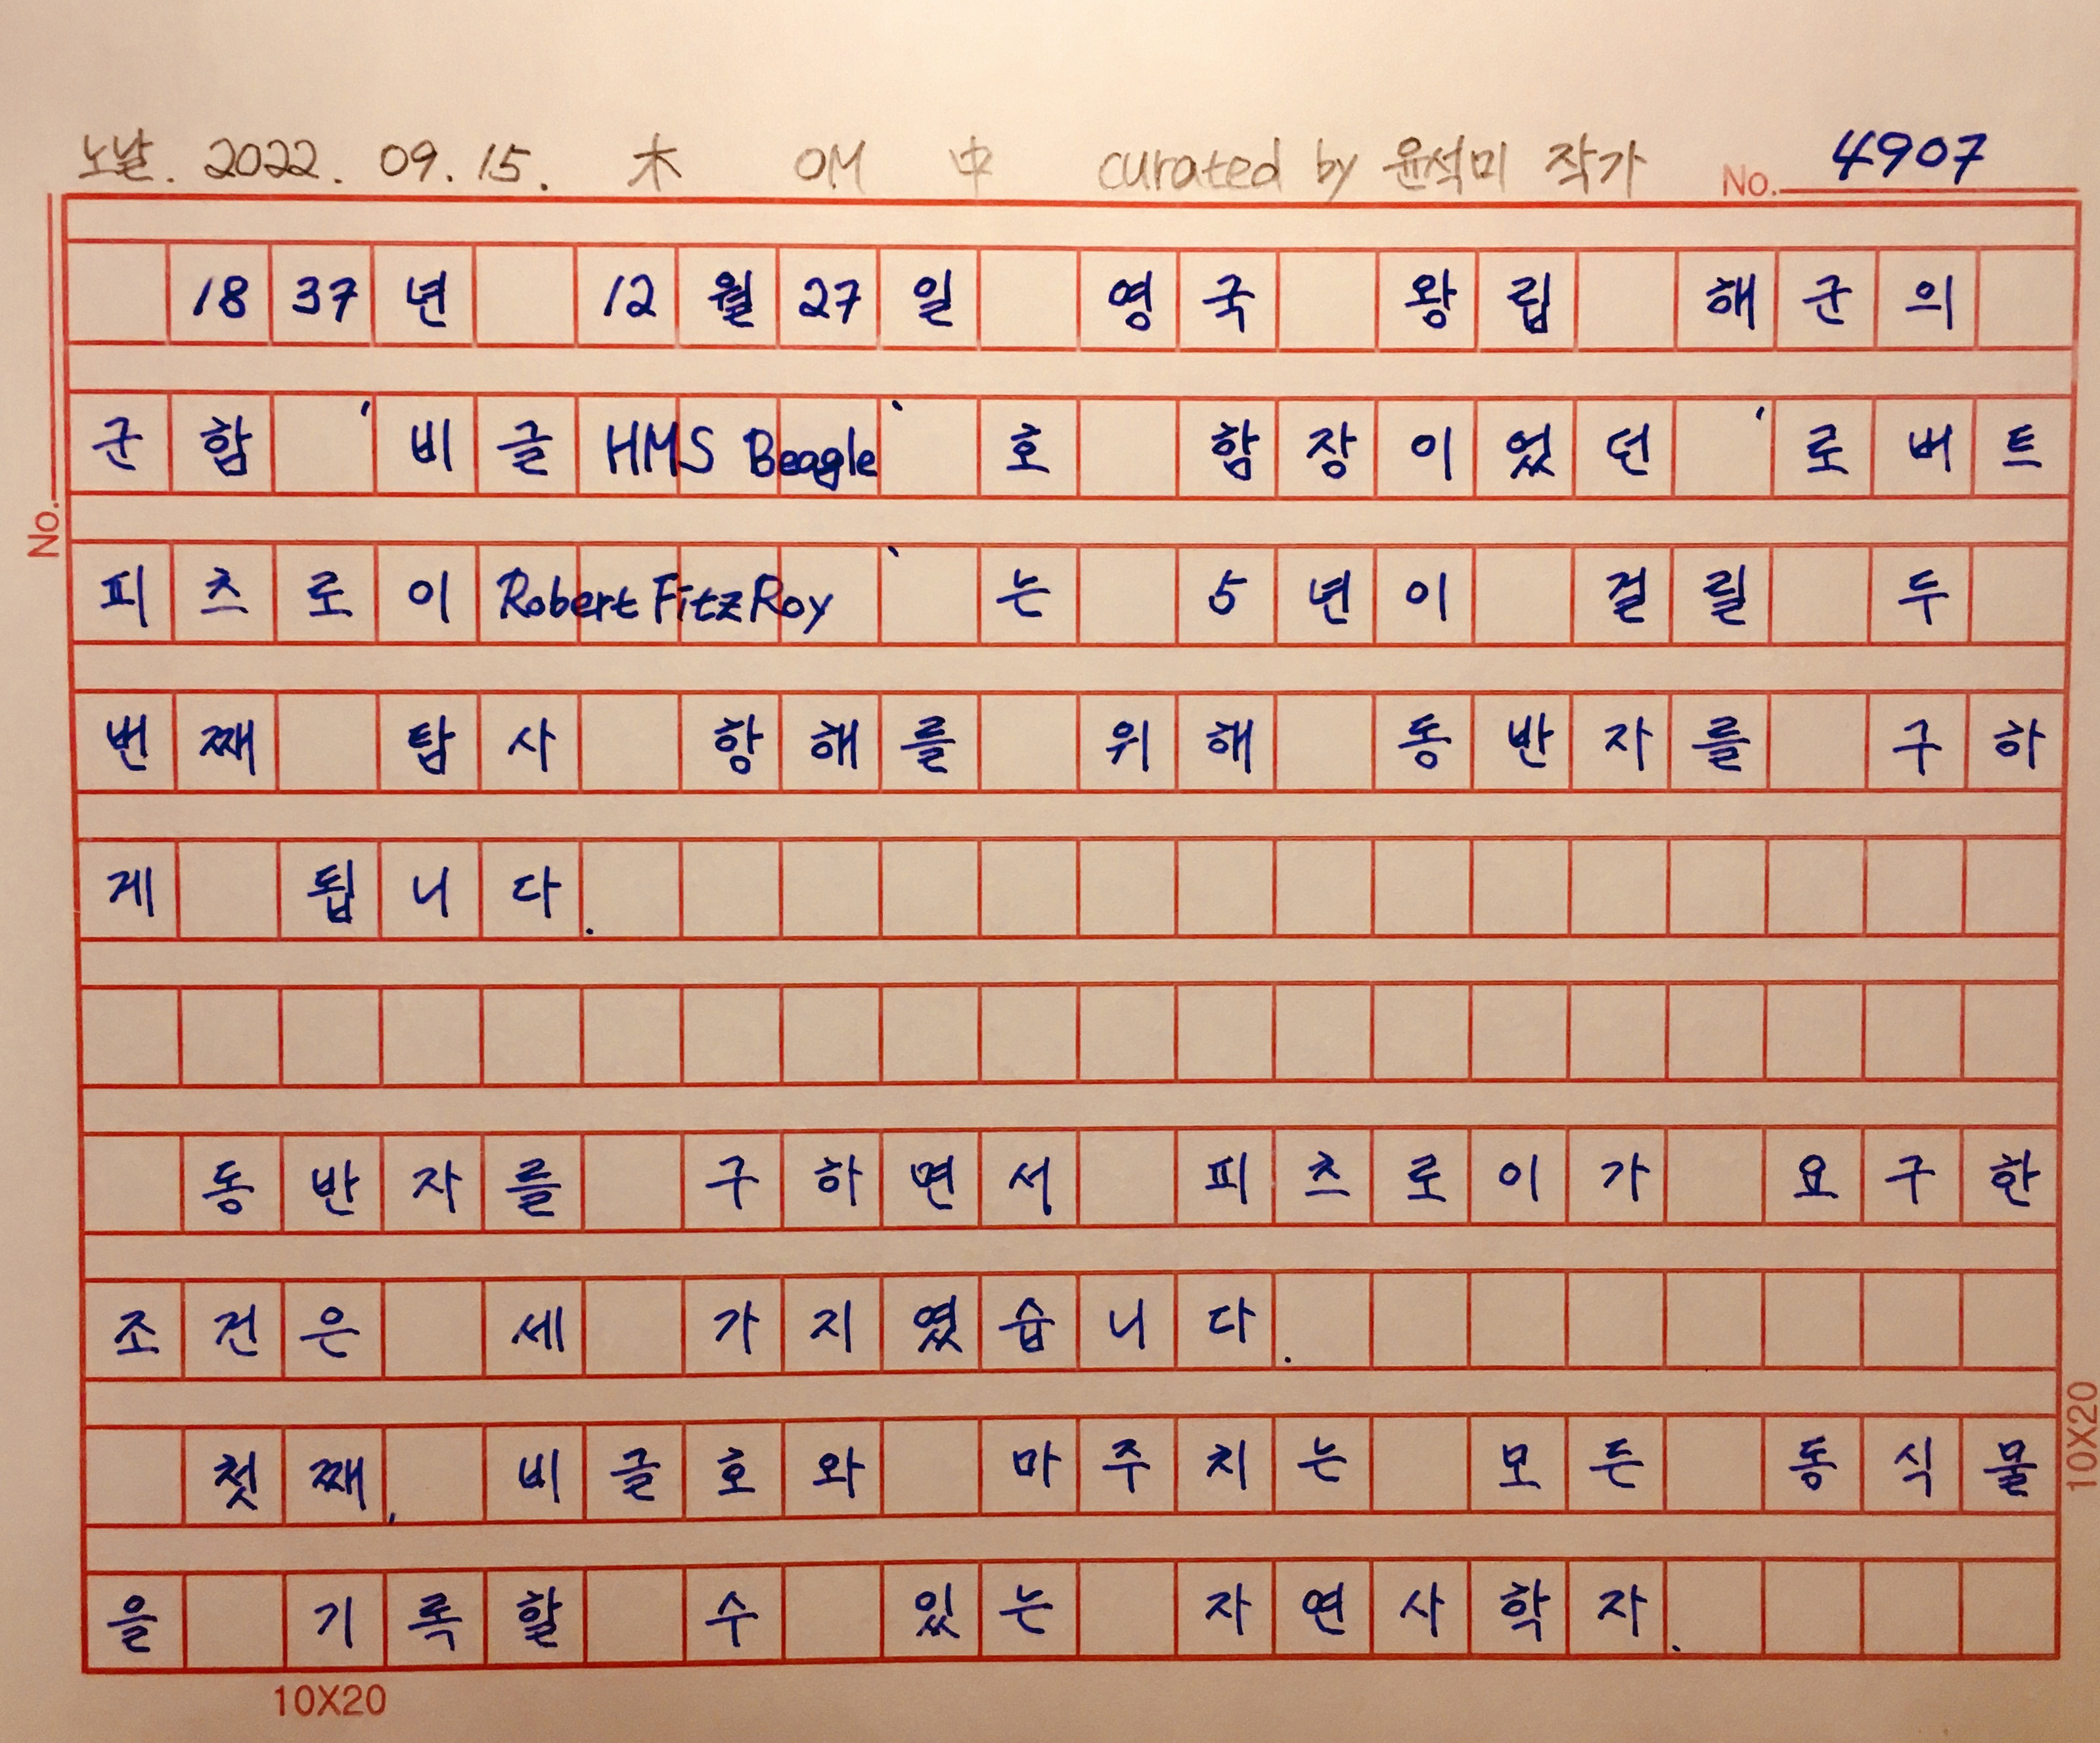 노날. 2022. 09. 15. 木 OM 中 curated by 윤석미 작가 No. 4907
1837년 12월 27일 영국 왕립 해군의
군함 '비글HMS Beagle' 호 함장이었던 '로버트
피츠로이Robert FitzRoy' 는 5년이 걸릴 두
번째 탐사 항해를 위해 동반자를 구하
게 됩니다.
동반자를 구하면서 피츠로이가 요구한
조건은 세 가지였습니다.
첫째, 비글호와 마주치는 모든 동식물
을 기록할 수 있는 자연사학자.
No.
10X20
10X20